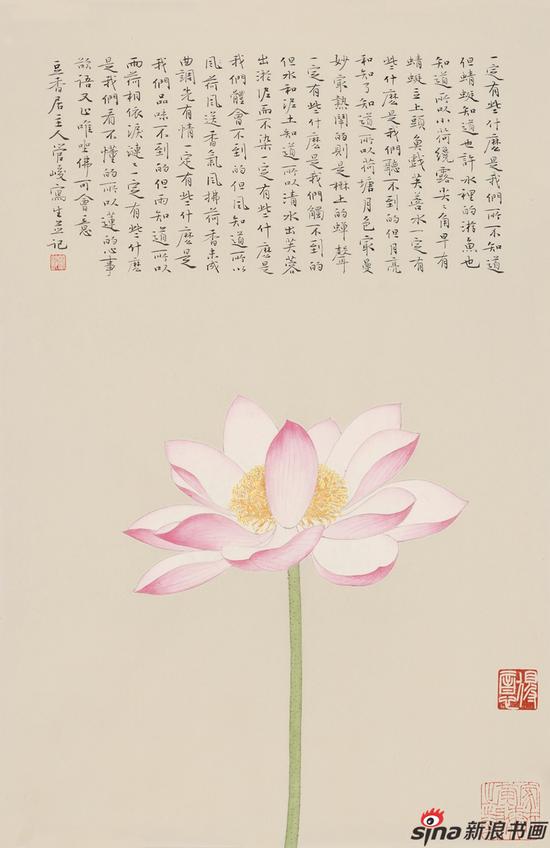 一定有些什麼是我們所不知道
但蜻蜓知道也許水裡的游魚也
知道所以小荷纔露尖〻角早有
蜻蜓立上頭魚戲芙蓉水一定有
些什麼是我們聽不到的但月亮
和知了知道所以荷塘月色最曼
妙最熱鬧的則是樹上的蟬聲
一定有些什麼是我們觸不到的
但水和泥土知道所以清水出芙蓉
出淤泥而不染一定有些什麼是
我們體會不到的但風知道所以
風荷風送香氣風拂荷香未成
曲調先有情一定有些什麼是
我們品味不到的但雨知道所以
雨荷相依淚漣〻一定有些什麼
是我們看不懂的所以蓮的心事
欲語又止唯坐佛可會意
豆香居主人管峻寫生並記
sina新浪书画